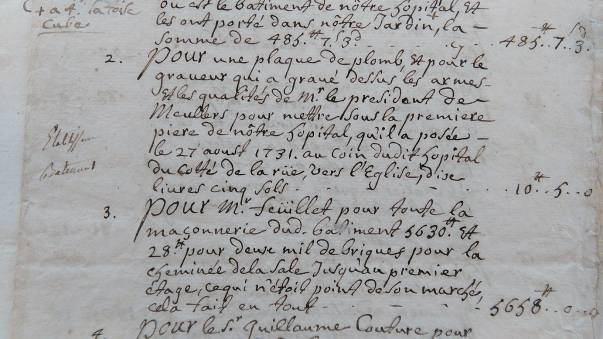 C + a 4tt la toise
cube
ou est le batiment de nôtre hopital, Et
les ont porté dans nôtre Jardin, la
somme de 485.tt 7.s 3.d 485..7..3.
2. Pour une plaque de plomb, Et pour le
graveur qui a gravé dessus les armes
Et les qualités de Mr. le president de
Meullers pour mettre sous la premiere
piere de nôtre hopital, qu'il a posée
le 27 aoust 1731. au coin dudit hopital
du Cotté de la rüe, vers l'Eglise, dix
liures cinq sols 10..5..0
3. Pour Mr. feüillet pour toute la
maçonnerie dud. batiment 5630.tt Et
28.tt pour deux mil de briques pour la
cheminée de la sale Jusqu'au premier
étage, ce qui n'étoit point de son marché,
cela fait en tout 5658..0..0
4. Pour le Sr. Guillaume Couture pour